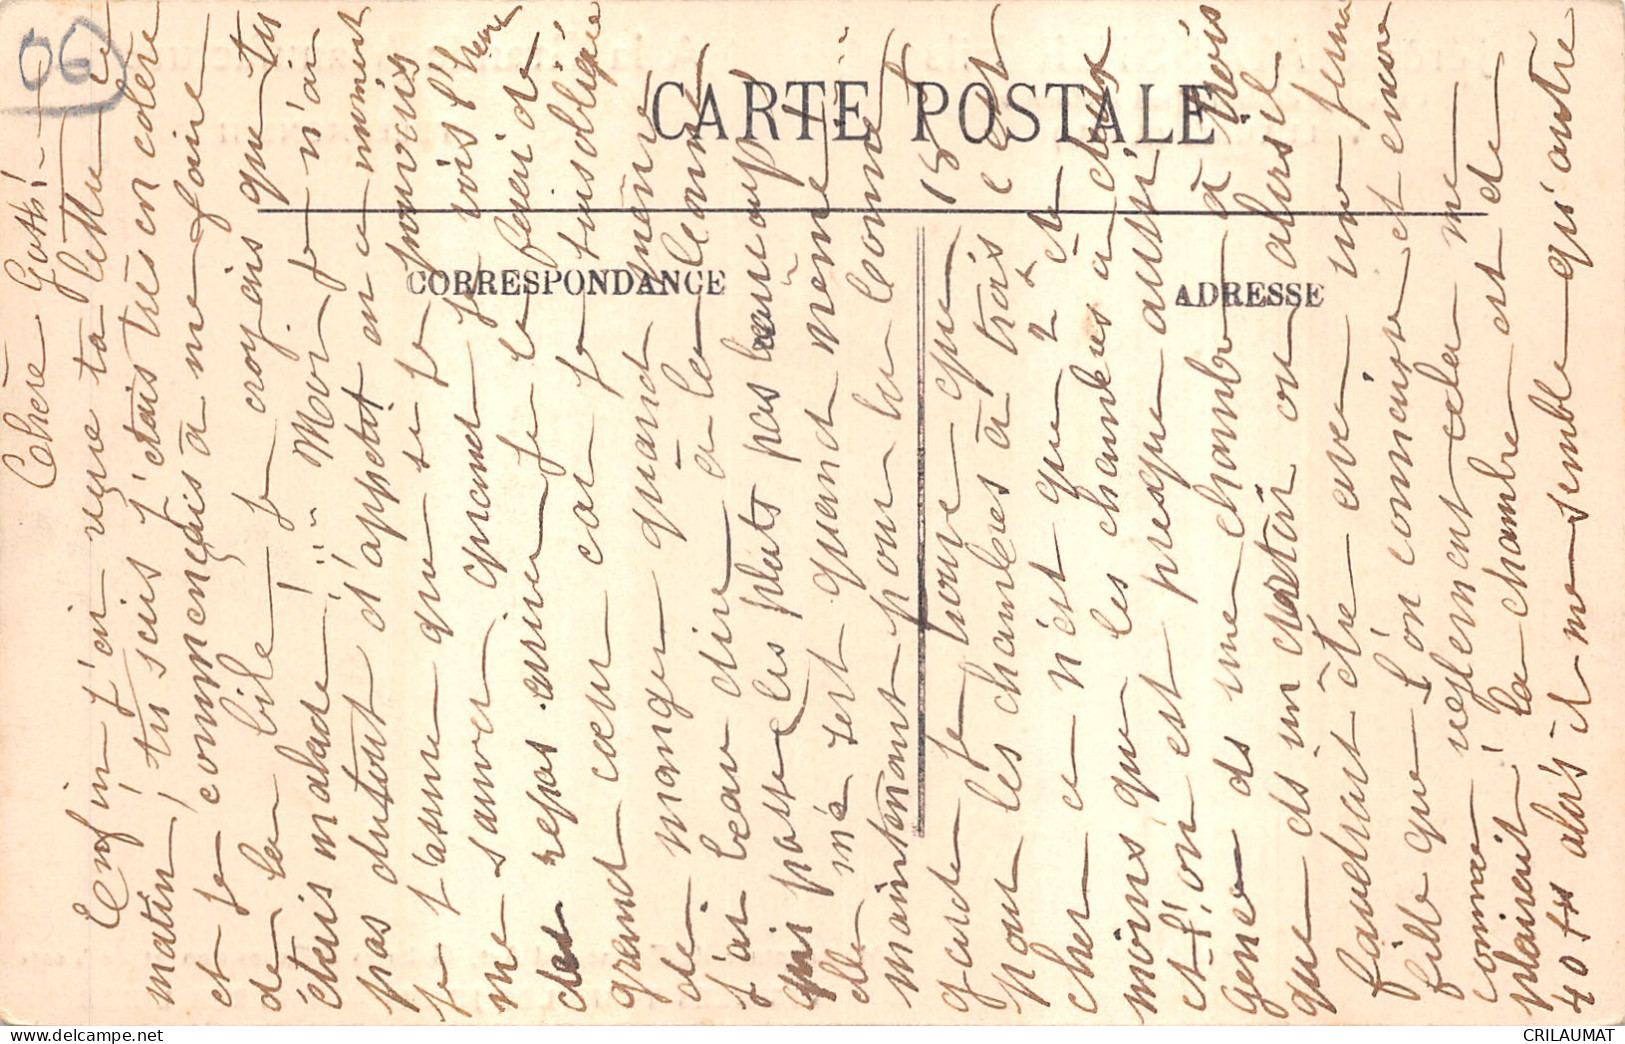 06
CARTE POSTALE
CORRESPONDANCE
ADRESSE
Chère Goth! -
Enfin j'ai reçue ta lettre ce
matin! tu sais j'étais très en colère
et je commençais à me faire
de la bile! je croyais que tu
étais malade! ... Moi je n'ai
pas du tout d'appetit en ce moment
je t'assure que si je pouvais
me sauver quand je vois l'heure
des repas arriver je le ferai de
grand cœur car je suis obligée
de manger quand même
j'ai beau dire à la bonne
qui passe les plats pas beaucoup
elle m'a sert quand même
maintenant pour la bonne
garde je trouve que 15 c'est
pour les chambres à trois
cher ce n'est que 2 de
moins que les chambres à deux
et l'on est presque aussi
gener ds une chambre à trois
que ds un dortoir ou alors il
faudrait être avec une femme
fille que l'on connaisse et encore
comme reglement cela me
plairait! la chambre est de
40 frs alors il me semble qu'autre
CRILAUMAT